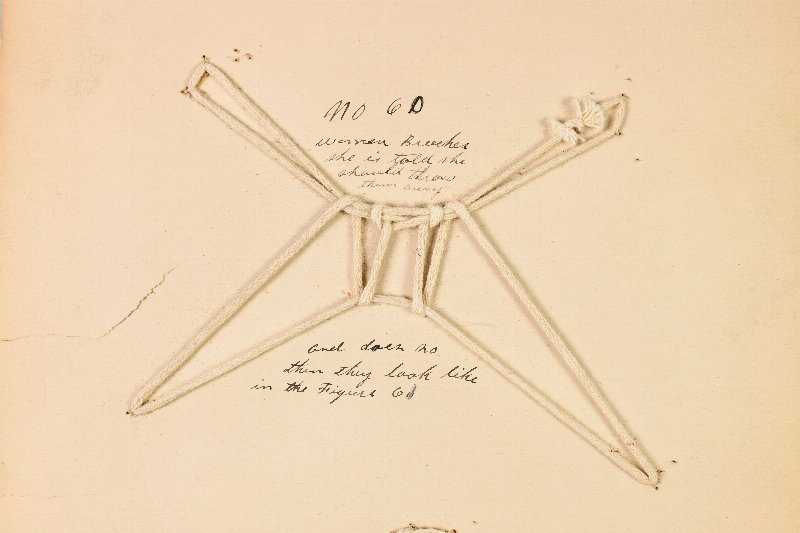 No 60
women Breeches
she is told she
should throw
them away
and does no
then they look like
in the Figure 61